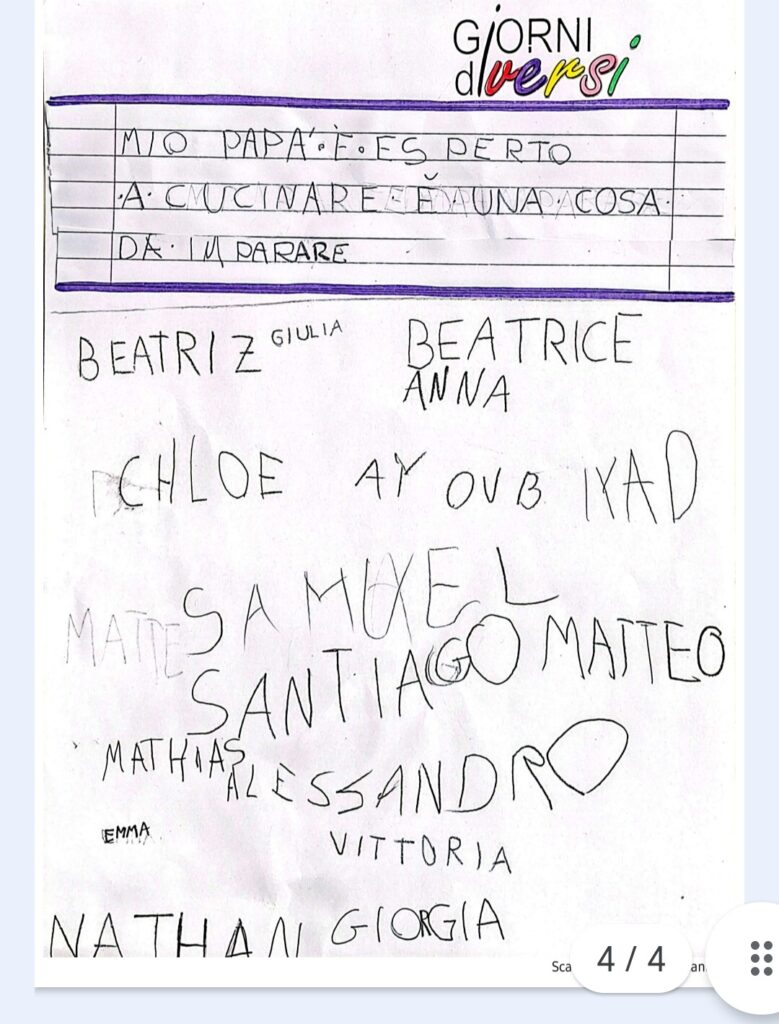 GIORNI
diversi
MIO PAPA'·È·ESPERTO
·A·CUCINARE È·UNA·COSA·
DA·IMPARARE
BEATRIZ GIULIA BEATRICE
ANNA
CHLOE AYOUB IYAD
SAMUEL
MATTE
SANTIAGO MATTEO
MATHIAS
ALESSANDRO
EMMA
VITTORIA
NATHAN GIORGIA
4 / 4